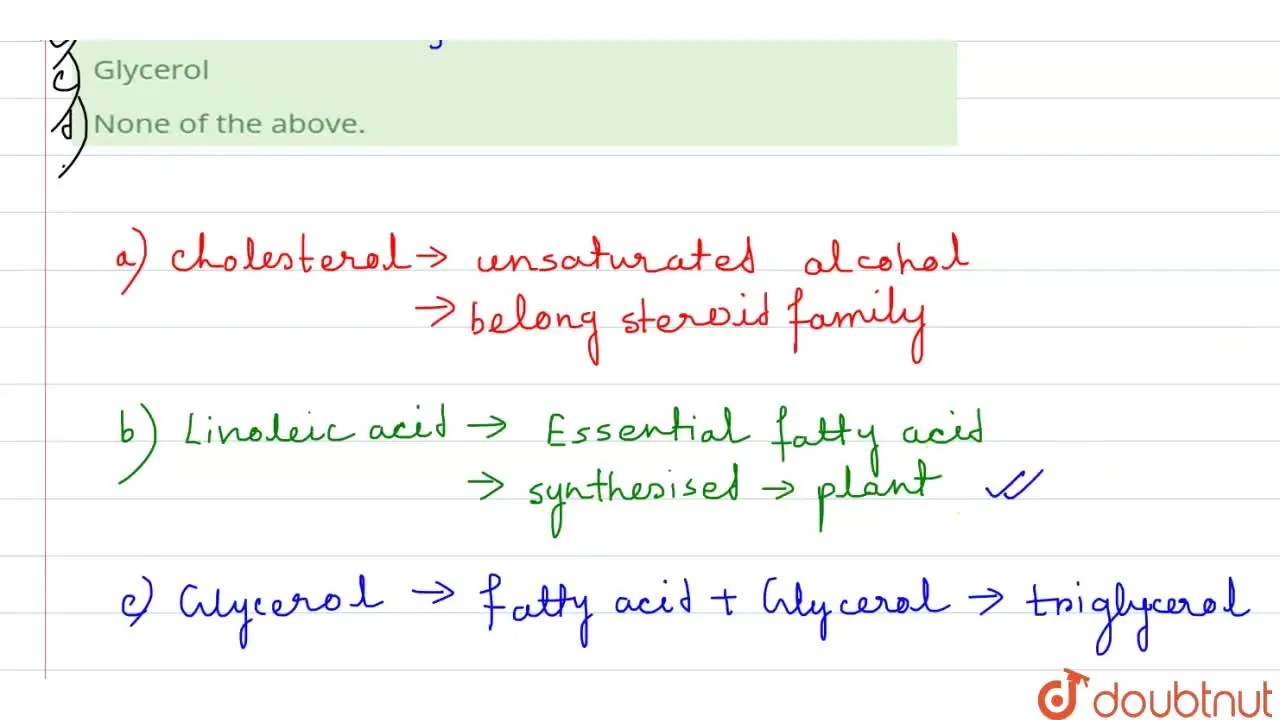 c) Glycerol
d) None of the above.
a) Cholesterol → unsaturated alcohol
→ belong steroid family
b) Linoleic acid → Essential fatty acid
→ synthesised → plant
c) Glycerol → fatty acid + Glycerol → triglycerol
doubtnut